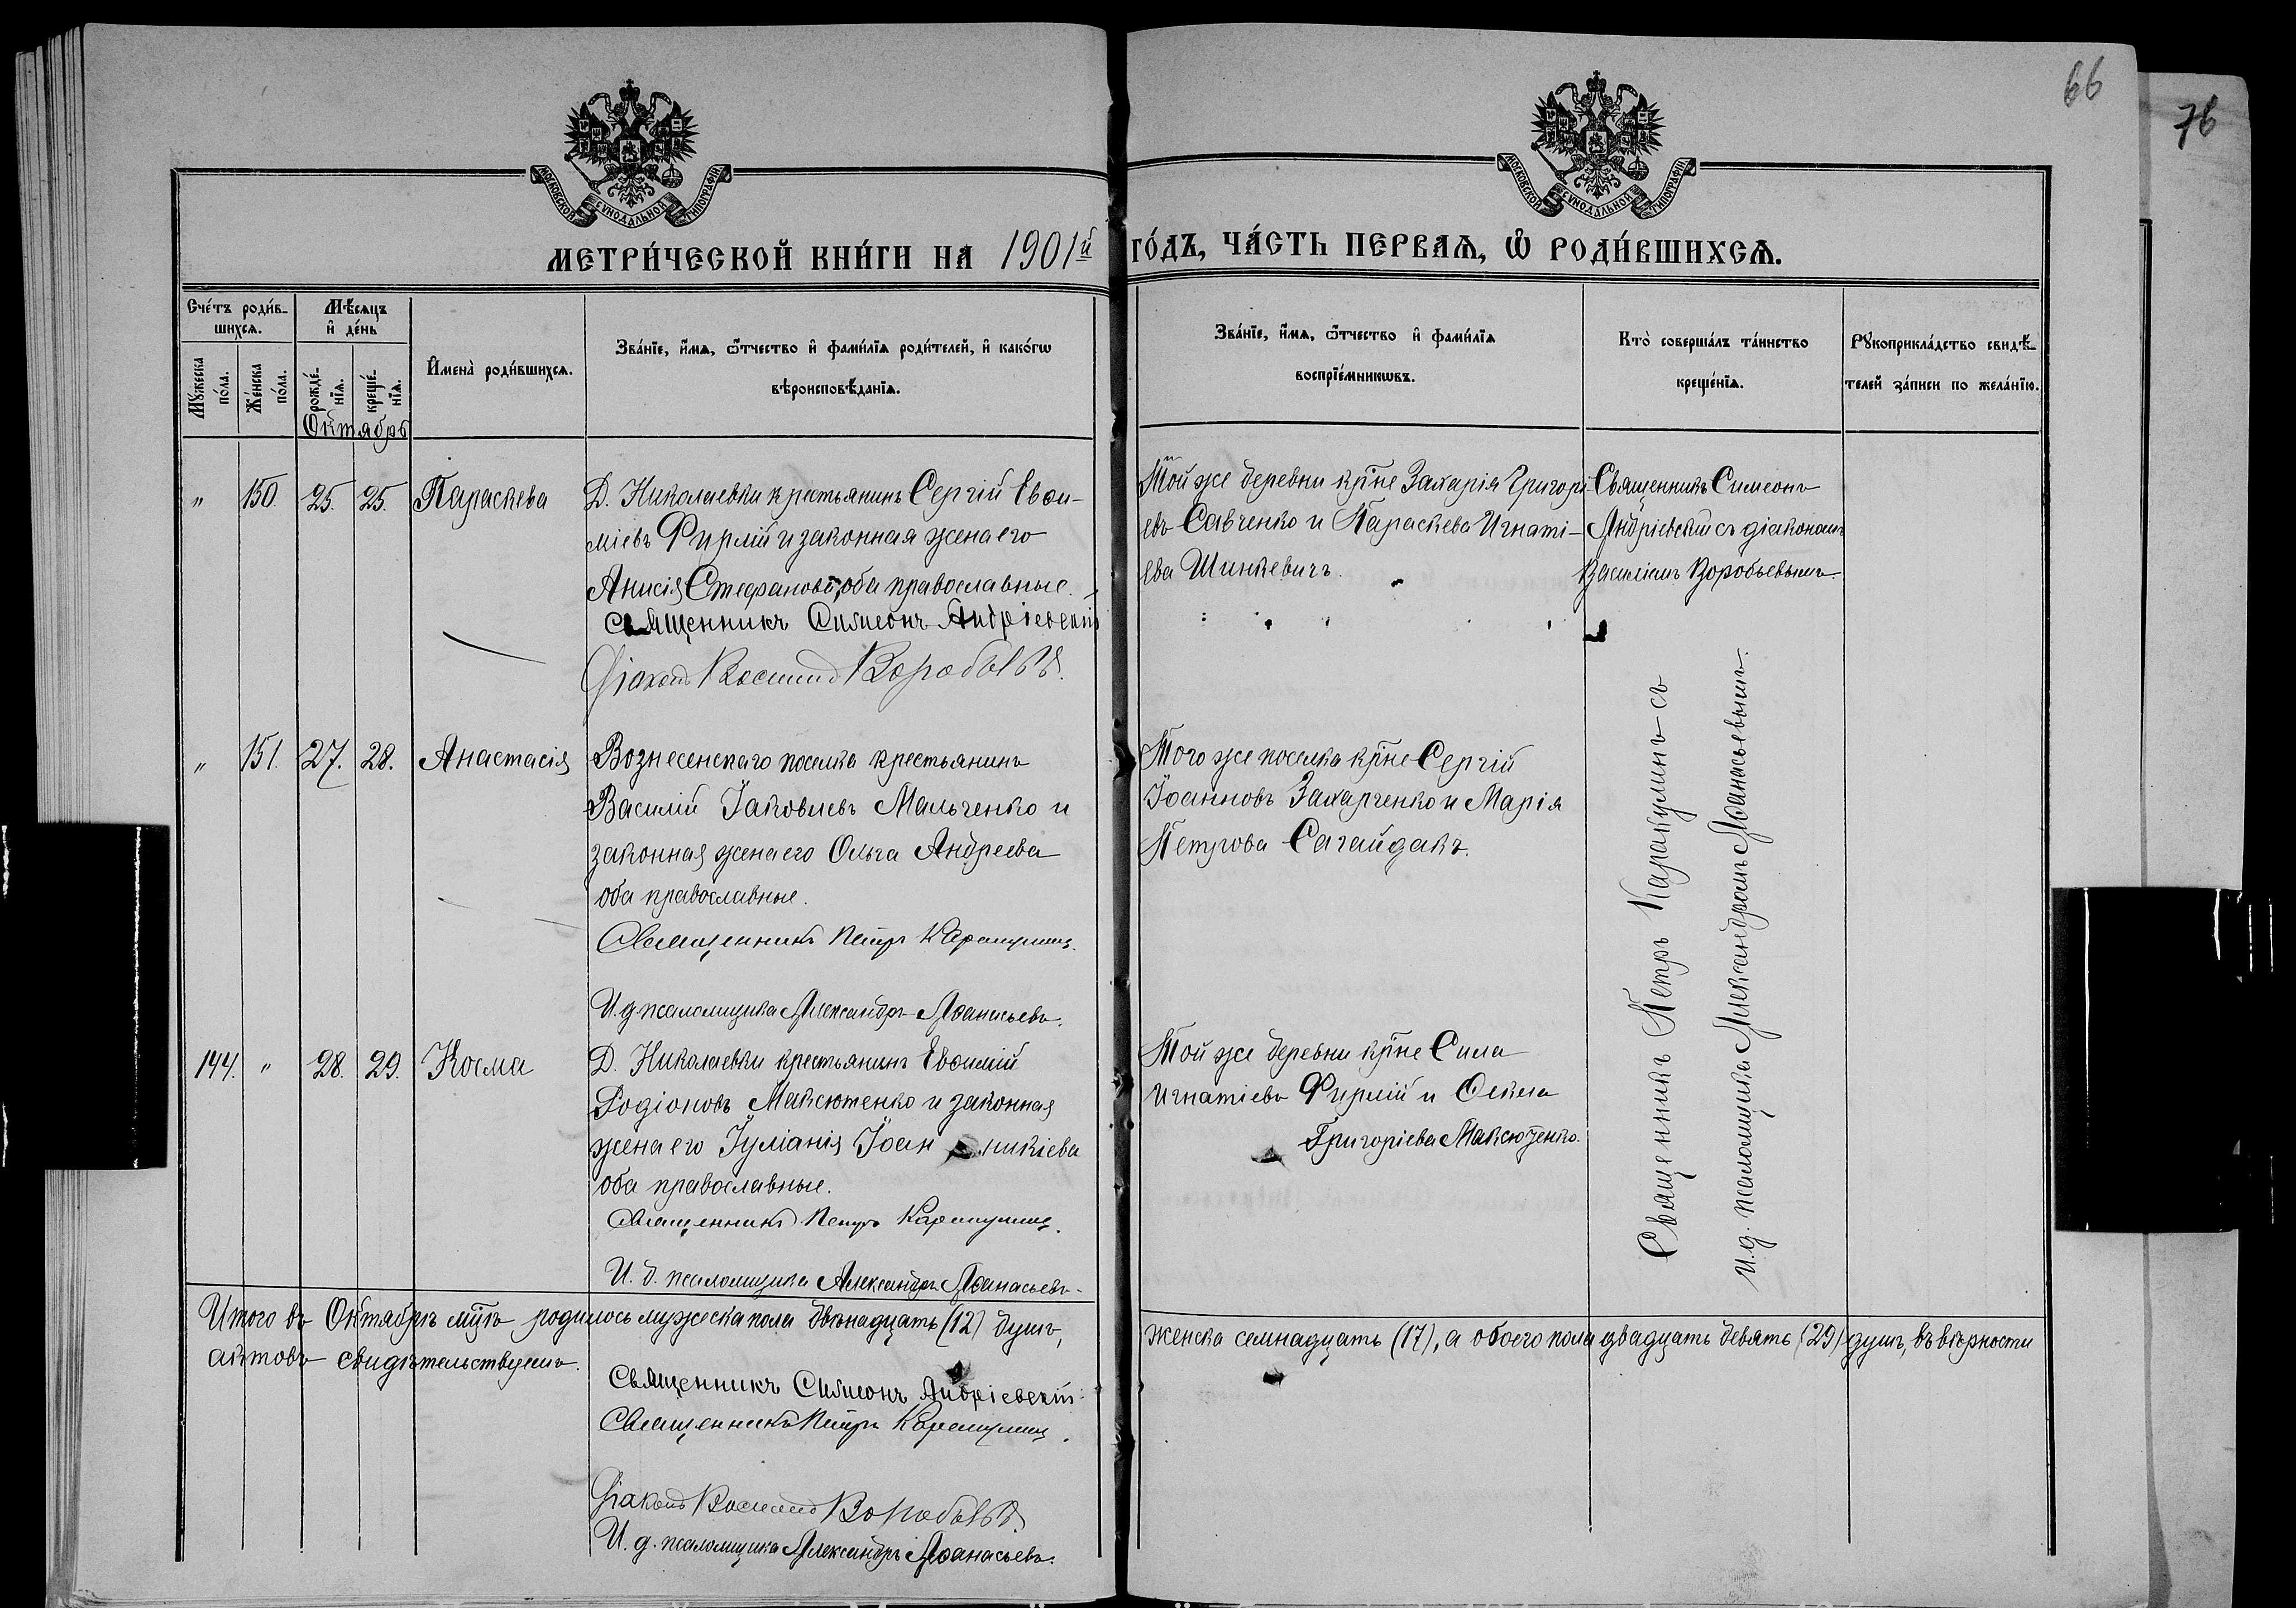 66
76
МОСКОВСКОЙ СѴНОДАЛЬНОЙ ТИПОГРАФІИ
МОСКОВСКОЙ СѴНОДАЛЬНОЙ ТИПОГРАФІИ
МЕТРИ́ЧЕСКОЙ КНИ́ГИ НА 1901й ГО́ДЪ, ЧА́СТЬ ПЕ́РВАѦ, Ѡ҆ РОДИ́ВШИХСѦ.
Сче́тъ роди́в-
шихсѧ.
Мꙋ́жеска
по́ла.
Же́нска
по́ла.
Мѣ́сѧцъ
и҆ де́нь
рожде́-
нїѧ.
креще́-
нїѧ.
Октябрь
И҆мена̀ роди́вшихсѧ.
Зва́нїе, и҆́мѧ, ѻ҆́тчество и҆ фами́лїѧ роди́телей, и҆ како́гѡ
вѣроисповѣ́данїѧ.
Зва́нїе, и҆́мѧ, ѻ҆́тчество и҆ фами́лїѧ
воспрїе́мникѡвъ.
Кто̀ соверша́лъ та́инство
креще́нїѧ.
Рꙋкоприкла́дство свидѣ́-
телей за́писи по жела́нїю.
" 150. 25. 25. Параскева
Д. Николаевки крестьянинъ Сергій Евѳи-
міевъ Фирлій и законная жена его
Анисія Стефанова, оба православные.
Священникъ Симеонъ Андріевскій
Діаконъ Василій Воробьевъ.
Той же деревни кр̃не Захарія Григорі-
евъ Савченко и Параскева Игнаті-
ева Шинкевичъ.
Священникъ Симеонъ
Андріевскій съ діакономъ
Василіемъ Воробьевымъ.
" 151. 27. 28. Анастасія
Вознесенскаго поселка крестьянинъ
Василій Іаковлевъ Мальченко и
законная жена его Ольга Андреева
оба православные.
Священникъ Петръ Каракулинъ.
И. д. псаломщика Александръ Аѳанасьевъ.
Того же поселка кр̃не Сергій
Іоанновъ Захарченко и Марія
Петрова Сагайдакъ.
Священникъ Петръ Каракулинъ съ
И. д. псаломщика Александромъ Аѳанасьевымъ.
144. " 28. 29. Косма
Д. Николаевки крестьянинъ Евѳимій
Родіоновъ Максютенко и законная
жена его Іуліанія Іоанникіева
оба православные.
Священникъ Петръ Каракулинъ.
И. д. псаломщика Александръ Аѳанасьевъ.
Той же деревни кр̃не Сила
Игнатіевъ Фирлій и Ѳекла
Григоріева Максютенко.
Итого въ Октябрѣ мц̃ѣ родилось мужеска пола двѣнадцать (12) душъ, женска семнадцать (17), а обоего пола двадцать девять (29) душъ, въ вѣрности
актовъ свидѣтельствуемъ.
Священникъ Симеонъ Андріевскій
Священникъ Петръ Каракулинъ.
Діаконъ Василій Воробьевъ.
И. д. псаломщика Александръ Аѳанасьевъ.